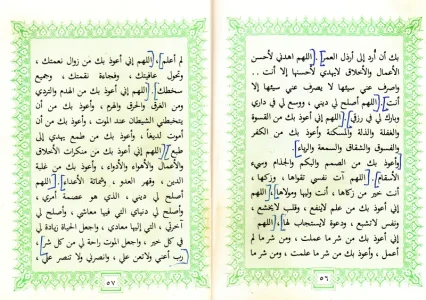 بك أن أُرد إلى أرذل العمر]. [اللهم اهدني لأحسن
الأعمال والأخلاق لايهدي لأحسنها إلا أنت ..
واصرف عني سيئها لا يصرف عني سيئها إلا
أنت]. [اللهم أصلح لي ديني، ووسع لي في داري
وبارك لي في رزقي]. [اللهم إني أعوذ بك من القسوة
والغفلة والذلة والمسكنة وأعوذ بك من الكفر
والفسوق والشقاق والسمعة والرياء.
وأعوذ بك من الصمم والبكم والجذام وسيء
الأسقام]. [اللهم آت نفسي تقواها، وزكها،
أنت خير من زكاها، أنت وليها ومولاها]. [اللهم
إني أعوذ بك من علم لاينفع، وقلب لايخشع،
ونفس لاتشبع، ودعوة لايستجاب لها]. [اللهم
إني أعوذ بك من شر ما عملت، ومن شر ما لم
أعمل، وأعوذ بك من شر ما علمت، ومن شر ما
٥٦
لم أعلم]. [اللهم إني أعوذ بك من زوال نعمتك،
وتحول عافيتك، وفجاءة نقمتك، وجميع
سخطك]. [اللهم إني أعوذ بك من الهدم والتردي
ومن الغرق والحرق والهرم، وأعوذ بك من أن
يتخبطني الشيطان عند الموت، وأعوذ بك من أن
أموت لديغاً، وأعوذ بك من طمع يهدي إلى
طبع]. [اللهم إني أعوذ بك من منكرات الأخلاق
والأعمال والأهواء والأدواء، وأعوذ بك من غلبة
الدين، وقهر العدو، وشماتة الأعداء]. [اللهم
أصلح لي ديني، الذي هو عصمة أمري،
وأصلح لي دنياي التي فيها معاشي، وأصلح لي
آخرتي، التي إليها معادي، واجعل الحياة زيادة لي
في كل خير، واجعل الموت راحة لي من كل شر].
[رب أعني ولاتعن علي، وانصرني ولا تنصر علي
٥٧